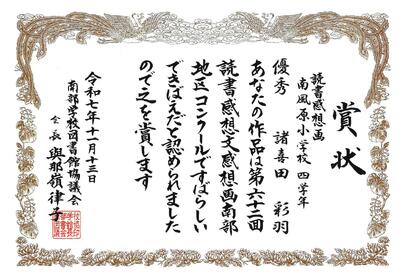 賞状
読書感想画
南風原小学校 四学年
優秀 諸喜田 彩羽
あなたの作品は第六十二回
読書感想文感想画南部
地区コンクールですばらしい
できばえだと認められました
ので之を賞します
令和七年十一月十三日
南部学校図書館協議会
会長 與那嶺律子